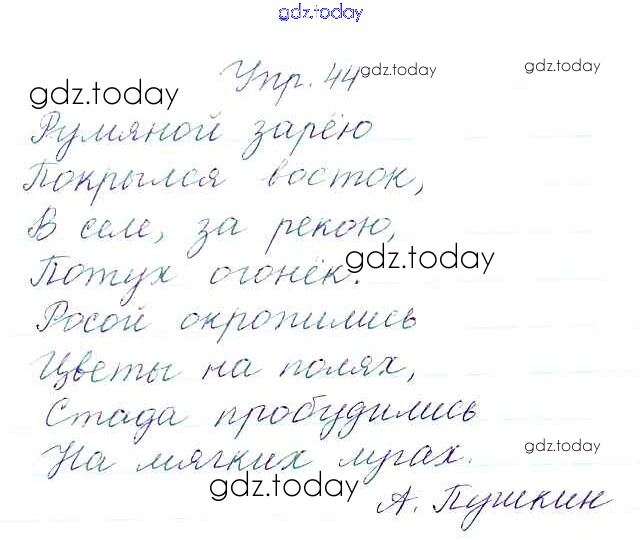 gdz.today
Упр. 44
gdz.today
gdz.today
gdz.today
Румяной зарёю
Покрылся восток,
В селе, за рекою,
Потух огонёк.
gdz.today
Росой окропились
Цветы на полях,
Стада пробудились
На мягких лугах.
gdz.today
gdz.today
А. Пушкин